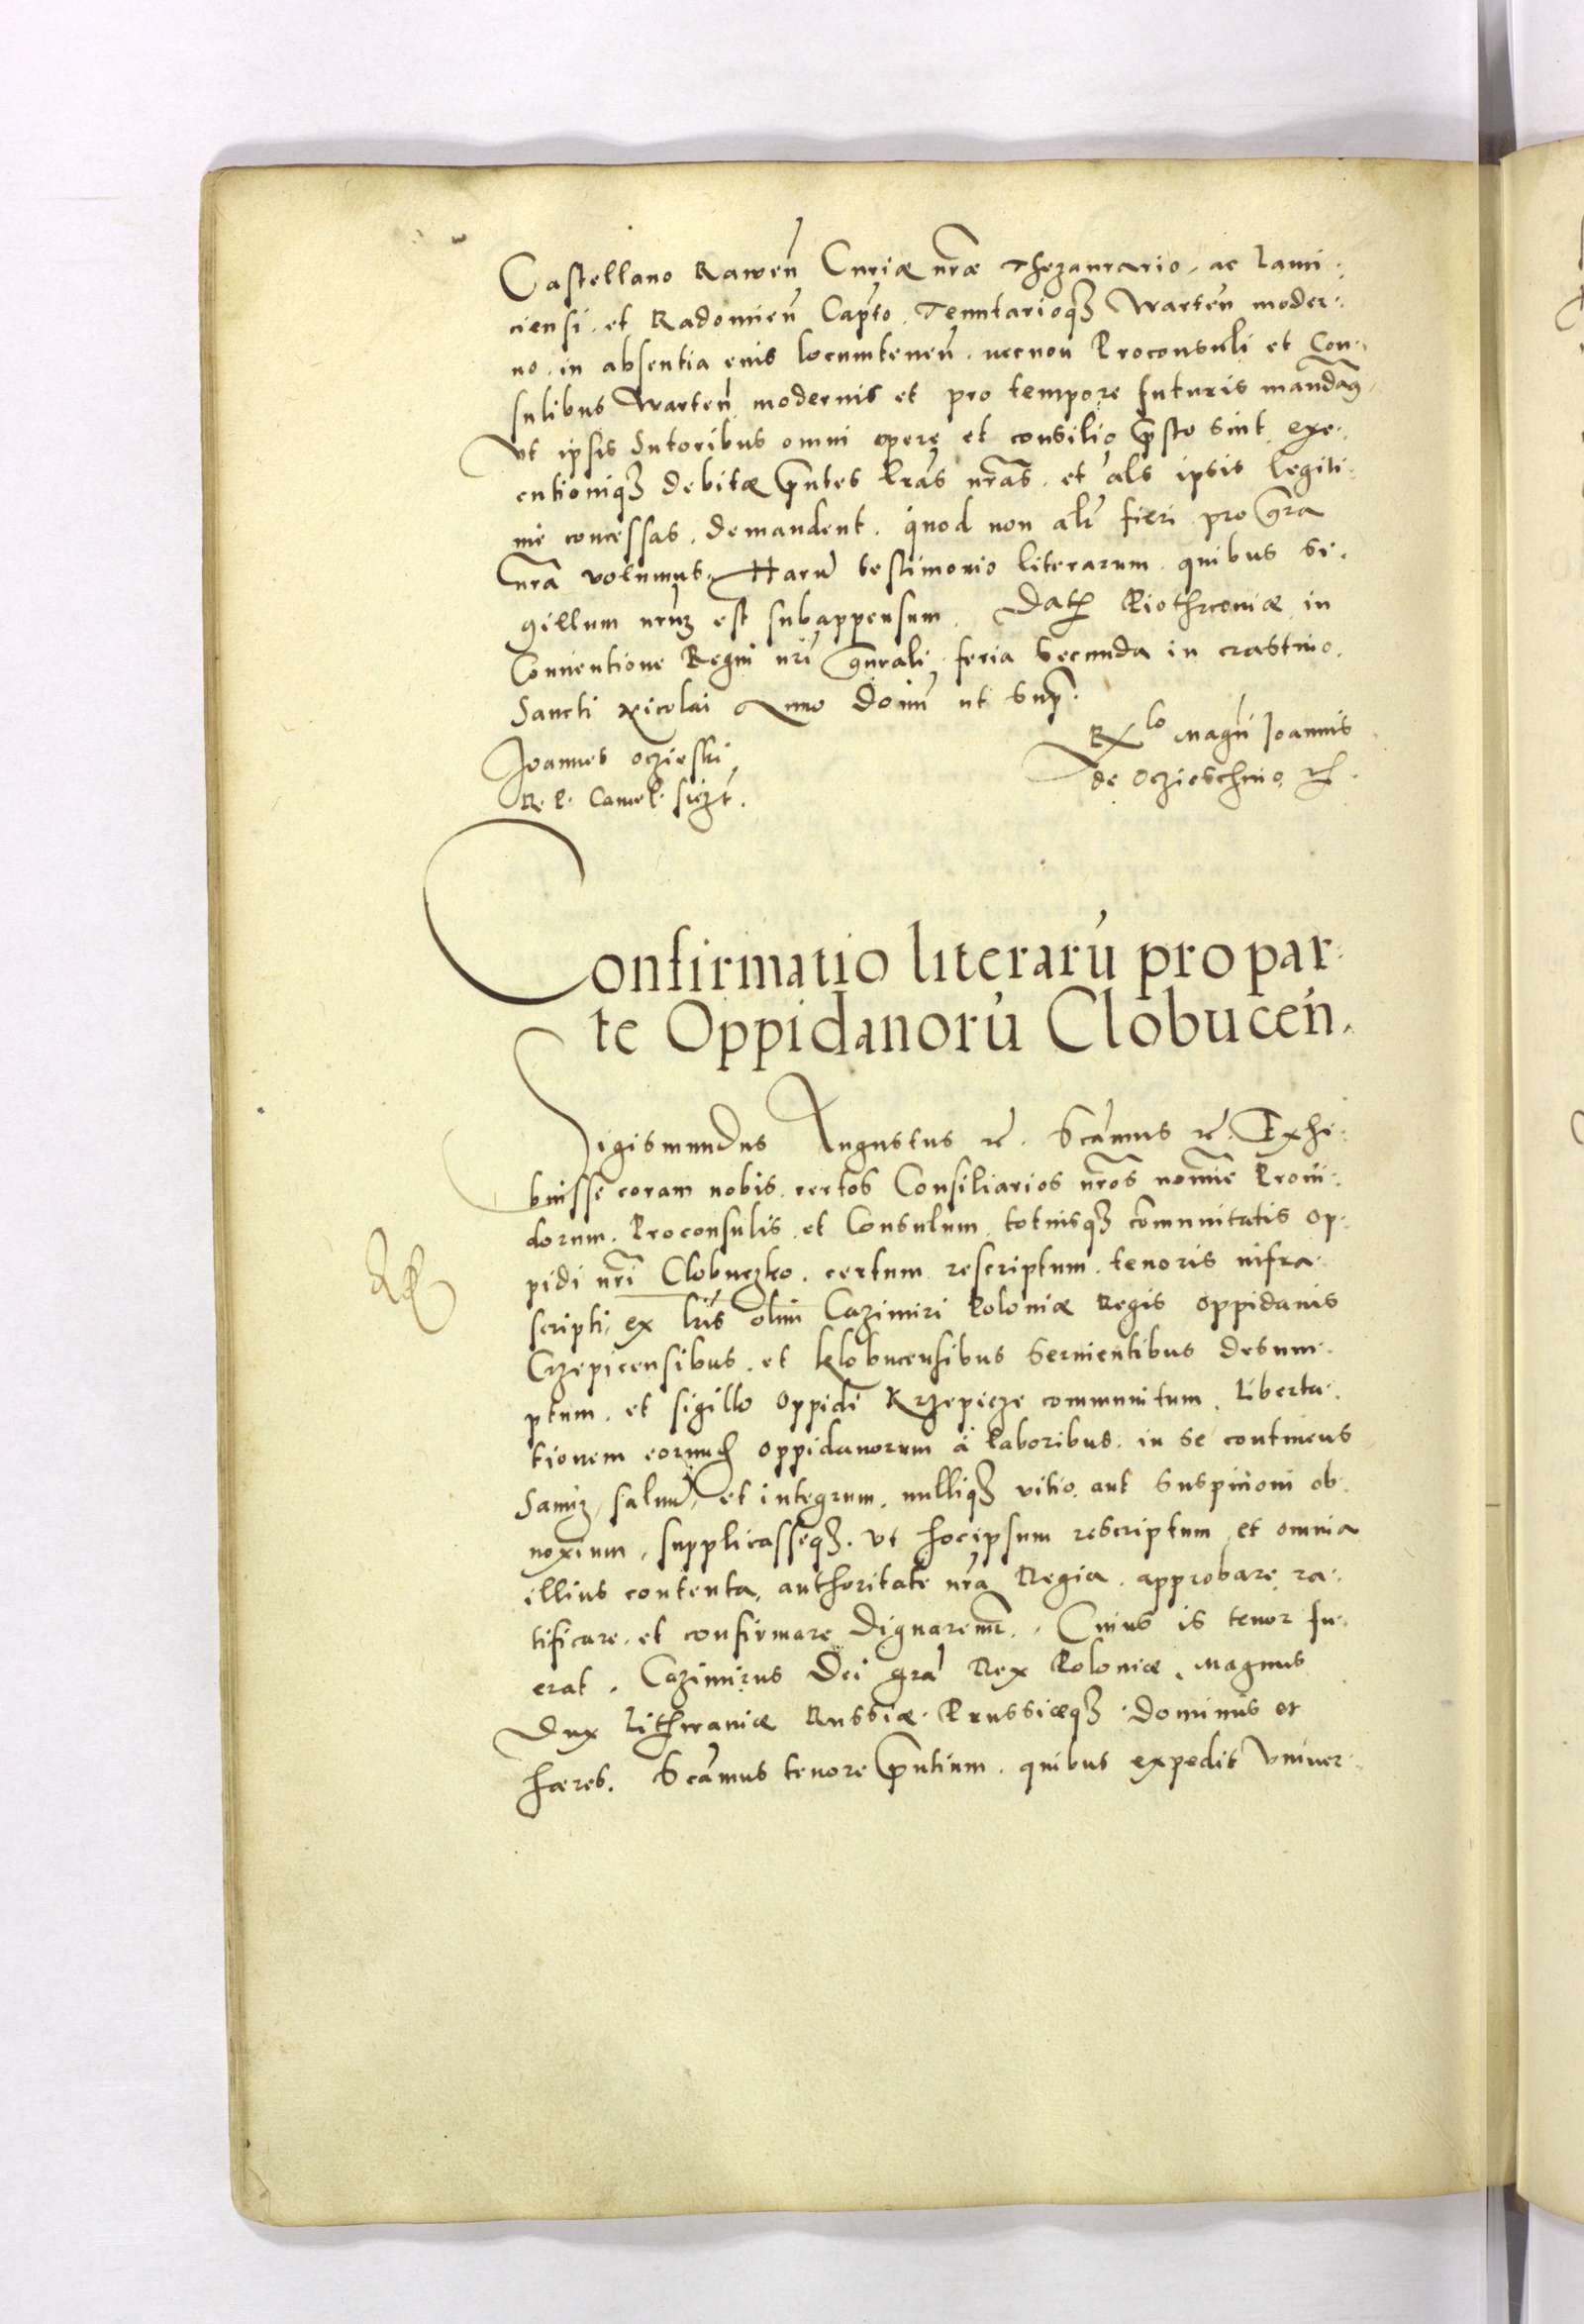 Castellano Rawen̄ Curiæ nr̄æ Thezaurario, ac Lami:
ciensi. et Radomien̄ Cap̄to. Tenutarioqꝫ Warten̄ moder:
no. in absentia eius locumtenen̄. necnon Proconsuli et Con:
sulibus Warten̄ modernis et pro tempore futuris mandam9
Vt ipsis Sutoribus omni opere et consilio p̄sto sint exe:
cutioniqꝫ debitæ p̄ntes lr̄as nr̄as. et al̄s ipsis legiti:
me concessas. demandent. quod non alr̄ fieri pro gr̄a
nr̄a volumus. Harū testimonio literarum. quibus si:
gillum nr̄uꝫ est subappensum. Datꝭ Piothrconiæ in
Conuentione Regni nr̄i gn̄rali. feria Secunda in crastino.
Sancti Nicolai Anno Domī ut sup̄.
Joannes oczieski
R. P. Cancel. s̄szt.
Rᵒ lo Magn̄ Joannis
de Oczieschino ꝛc̄.
Confirmatio literarū pro par:
te Oppidanorū Clobucen̄.
Sigismundus Augustus ꝛc̄. Scām̄us ꝛc̄. Exhi:
buisse coram nobis. certos Consiliarios nr̄os nomine Proui:
dorum. Proconsulis. et Consulum totiusqꝫ cōmunitatis op:
pidi nr̄i Clobuczko. certum rescriptum. tenoris infra:
scripti, ex lr̄is olim Cazimiri Poloniæ Regis oppidanis
Crzepicensibus. et klobucensibus Seruientibus desum:
ptum. et sigillo oppidi Krzepicze communitum. liberta:
tionem eorundꝭ oppidanorum à laboribus. in se continens
Sanuꝫ, saluū, et integrum. nulliqꝫ vitio. aut Suspicioni ob:
noxium, supplicasseqꝫ. Vt hocipsum rescriptum et omnia
illius contenta, authoritate nr̄a Regia. approbare ra:
tificare. et confirmare dignaremur. Cuius is tenor fu:
erat. Cazimirus Dei grā Rex Poloniæ, Magnus
Dux Lithwaniæ Russiæ. Prussiæqꝫ. dominus et
hæres. Scām̄us tenore p̄ntium. quibus expedit Vniuer: